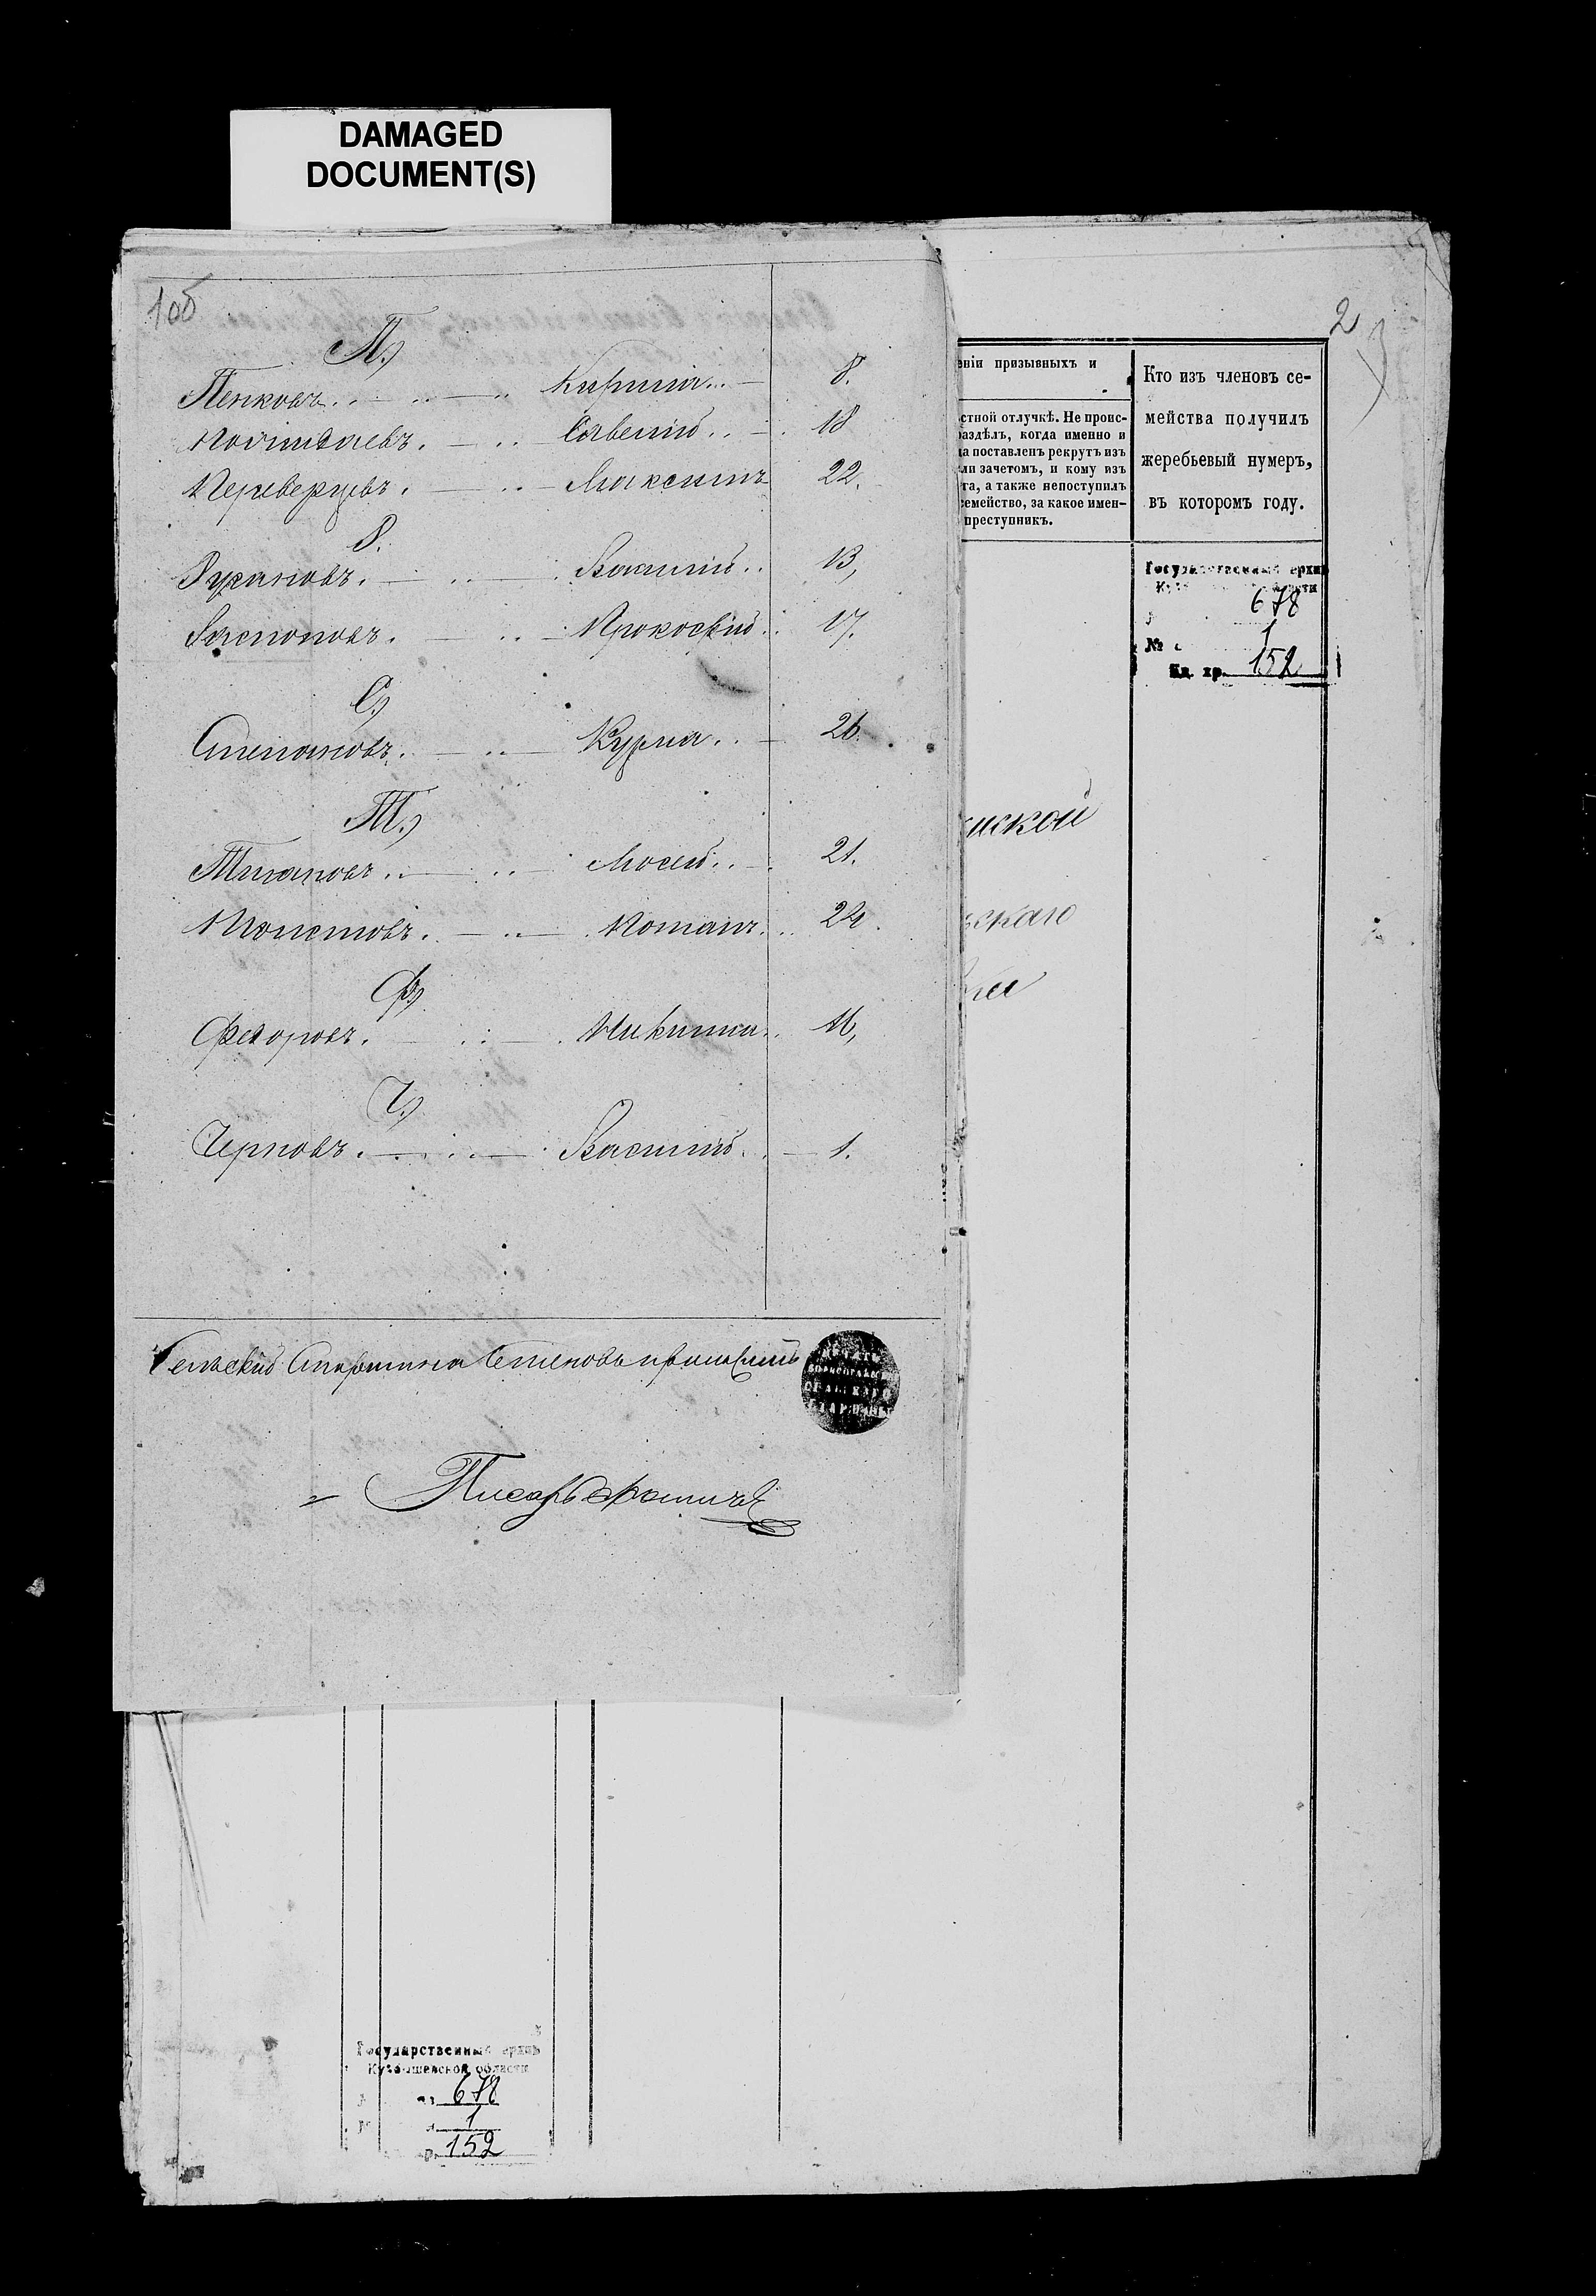 DAMAGED
DOCUMENT(S)
1об
П.)
Пенковъ Кирила 8.
Савелий 18
Переверзевъ Максимъ 22.
Р.
Русановъ Василий 13,
Распоповъ Прокофий 17.
С.)
Степановъ Курма 26.
Т.)
Тихановъ Мосей 21.
Толстовъ Потапъ 24.
Ф.)
Федоровъ Никита 16,
Ч.)
Черновъ Василий 1.
Сельский Старшина Семеновъ
Писарь
2
еніи призывныхъ и
стной отлучкѣ. Не проис-
раздѣлъ, когда именно и
да поставленъ рекрутъ изъ
или зачетомъ, и кому изъ
та, а также непоступилъ
семейство, за какое имен-
преступникъ.
Кто изъ членовъ се-
мейства получилъ
жеребьевый нумеръ,
въ которомъ году.
Государственный архив
678
№ 1
Ед. хр. 152
ской
скаго
Государственный архив
Куйбышевской области
678
1
152